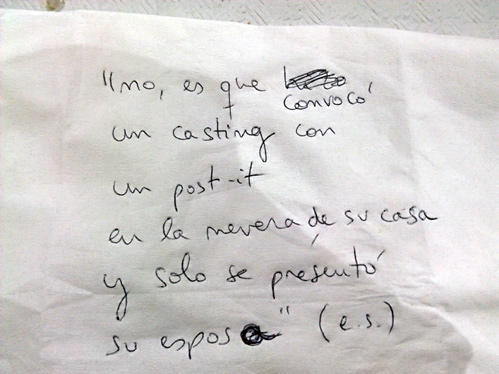 "no, es que
convocó
un casting con
un post-it
en la nevera de su casa
y solo se presentó
su esposa" (e.s.)